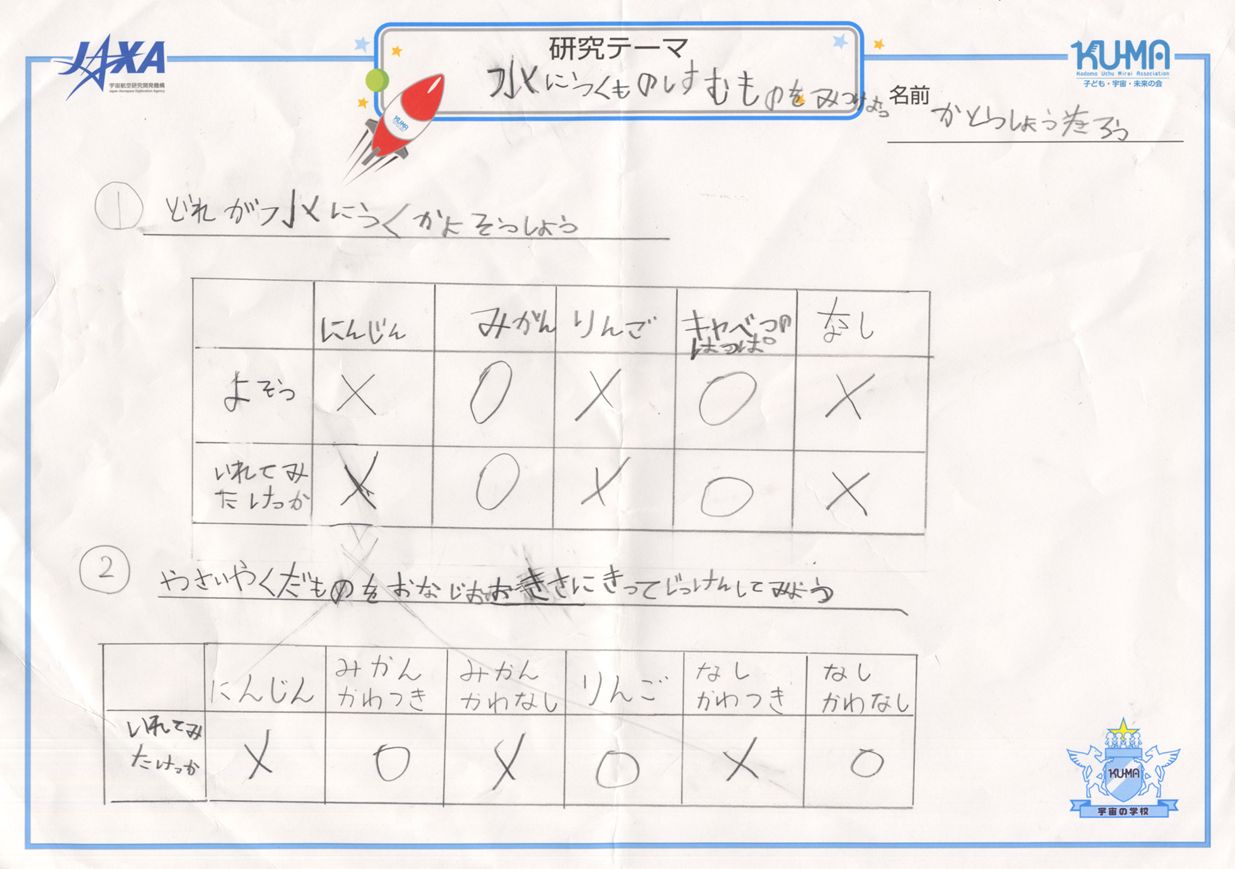 JAXA
宇宙航空研究開発機構
Japan Aerospace Exploration Agency
研究テーマ
水にうくものしずむものをみつけよう
KUMA
Kodomo Uchu Mirai Association
子ども・宇宙・未来の会
名前
かとうしょうたろう
KUMA
① どれがっ水にうくかよそうしょう
にんじん みかん りんご キャべつの はっぱ なし
よそう × ○ × ○ ×
いれてみ たけっか × ○ × ○ ×
② やさいやくだものをおなじおおきさにきってじっけんしてみよう
にんじん みかん かわつき みかん かわなし りんご なし かわつき なし かわなし
いれてみ たけっか × ○ × ○ × ○
KUMA
宇宙の学校